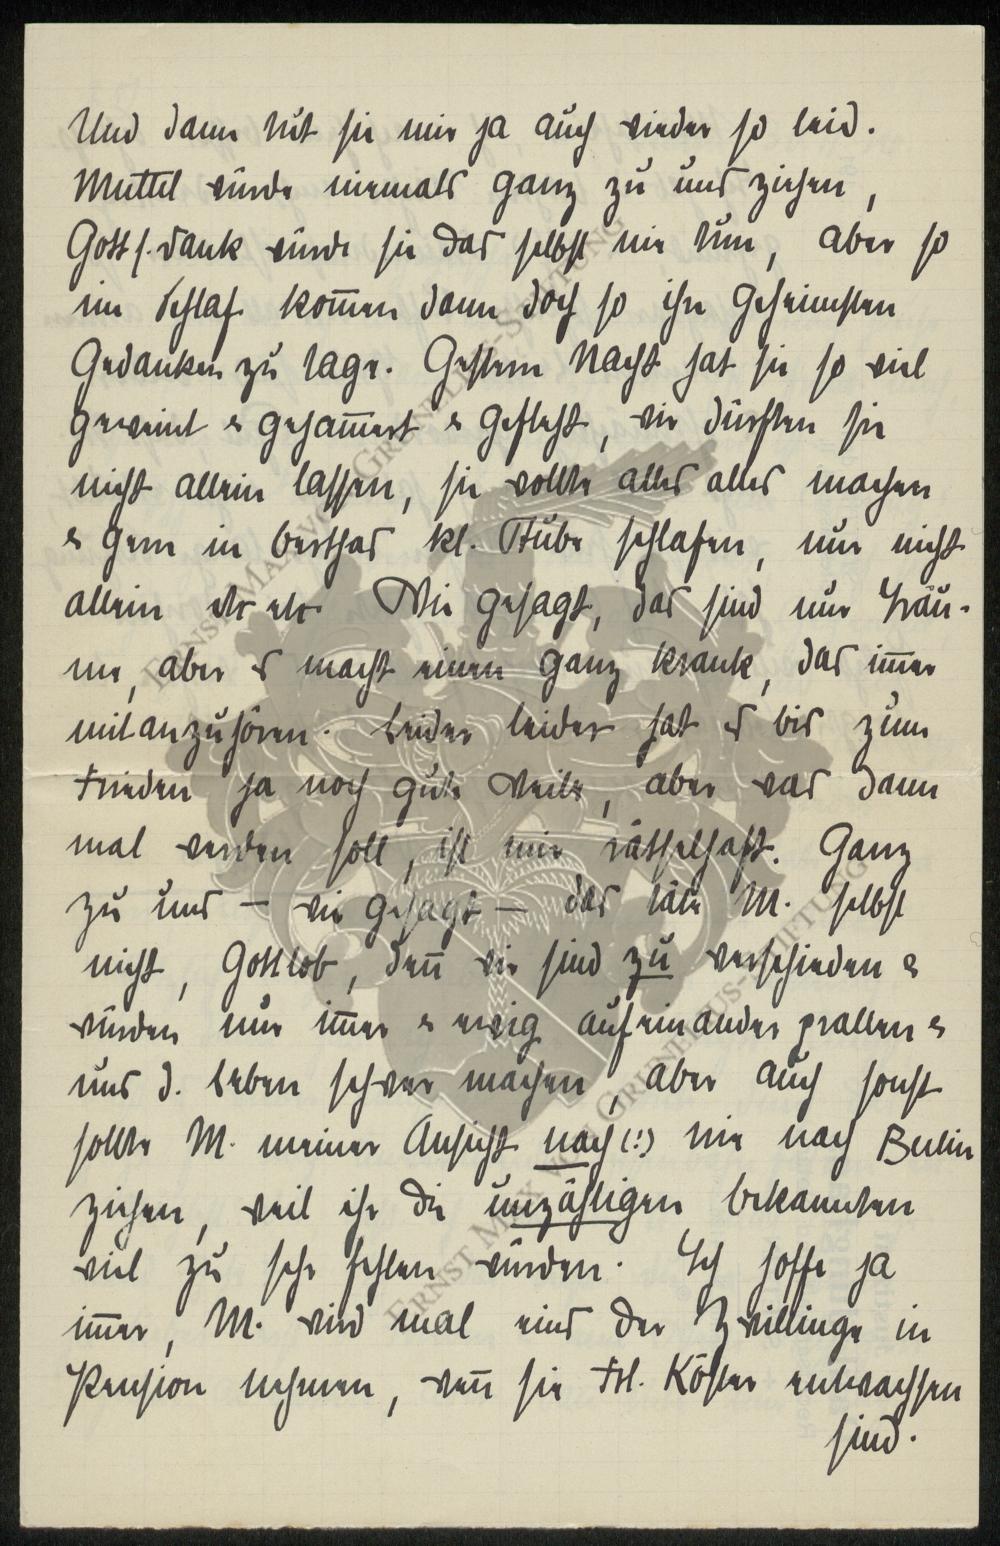 Und dann tut sie mir ja auch wieder so leid.
Muttel würde niemals ganz zu uns ziehen,
Gott s. Dank würde sie das selbst nie tun, aber so
im Schlaf kom̅en dann doch so ihre geheimsten
Gedanken zu tage. Gestern Nacht hat sie so viel
geweint & gejam̅ert & gefleht, wir dürften sie
nicht allein lassen, sie wollte alles alles machen
& gern in Berthas kl. Stube schlafen, nur nicht
allein etc etc. Wie gesagt, das sind nur Träu-
me, aber es macht einen ganz krank, das im̅er
mitanzuhören. Leider leider hat es bis zum
Frieden ja noch gute Weile, aber was dann
mal werden soll, ist mir rätselhaft. Ganz
zu uns – wie gesagt – das täte M. selbst
nicht, Gottlob, den̅ wir sind zu verschieden &
würden nur im̅er & ewig aufeinander prallen &
uns d. Leben schwer machen, aber auch sonst
sollte M. meiner Ansicht nach (!) nie nach Berlin
ziehen, weil ihr die unzähligen Bekannten
viel zu sehr fehlen würden. Ich hoffe ja
im̅er, M. wird mal eins der Zwillinge in
Pension nehmen, wen̅ sie Frl. Köster entwachsen
sind.
ERNST MAX VON GRUNELIUS-STIFTUNG
ERNST MAX VON GRUNELIUS-STIFTUNG